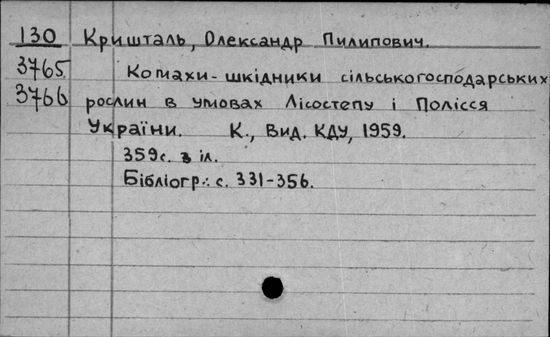 130 Кришталь, Олександр Пилипович.
3765 Комахи-шкідники сільськогосподарських
3766 рослин в умовах Лісостепу і Полісся
України. К., Вид. КДУ, 1959.
359с. з іл.
Бібліогр.: с. 331-356.